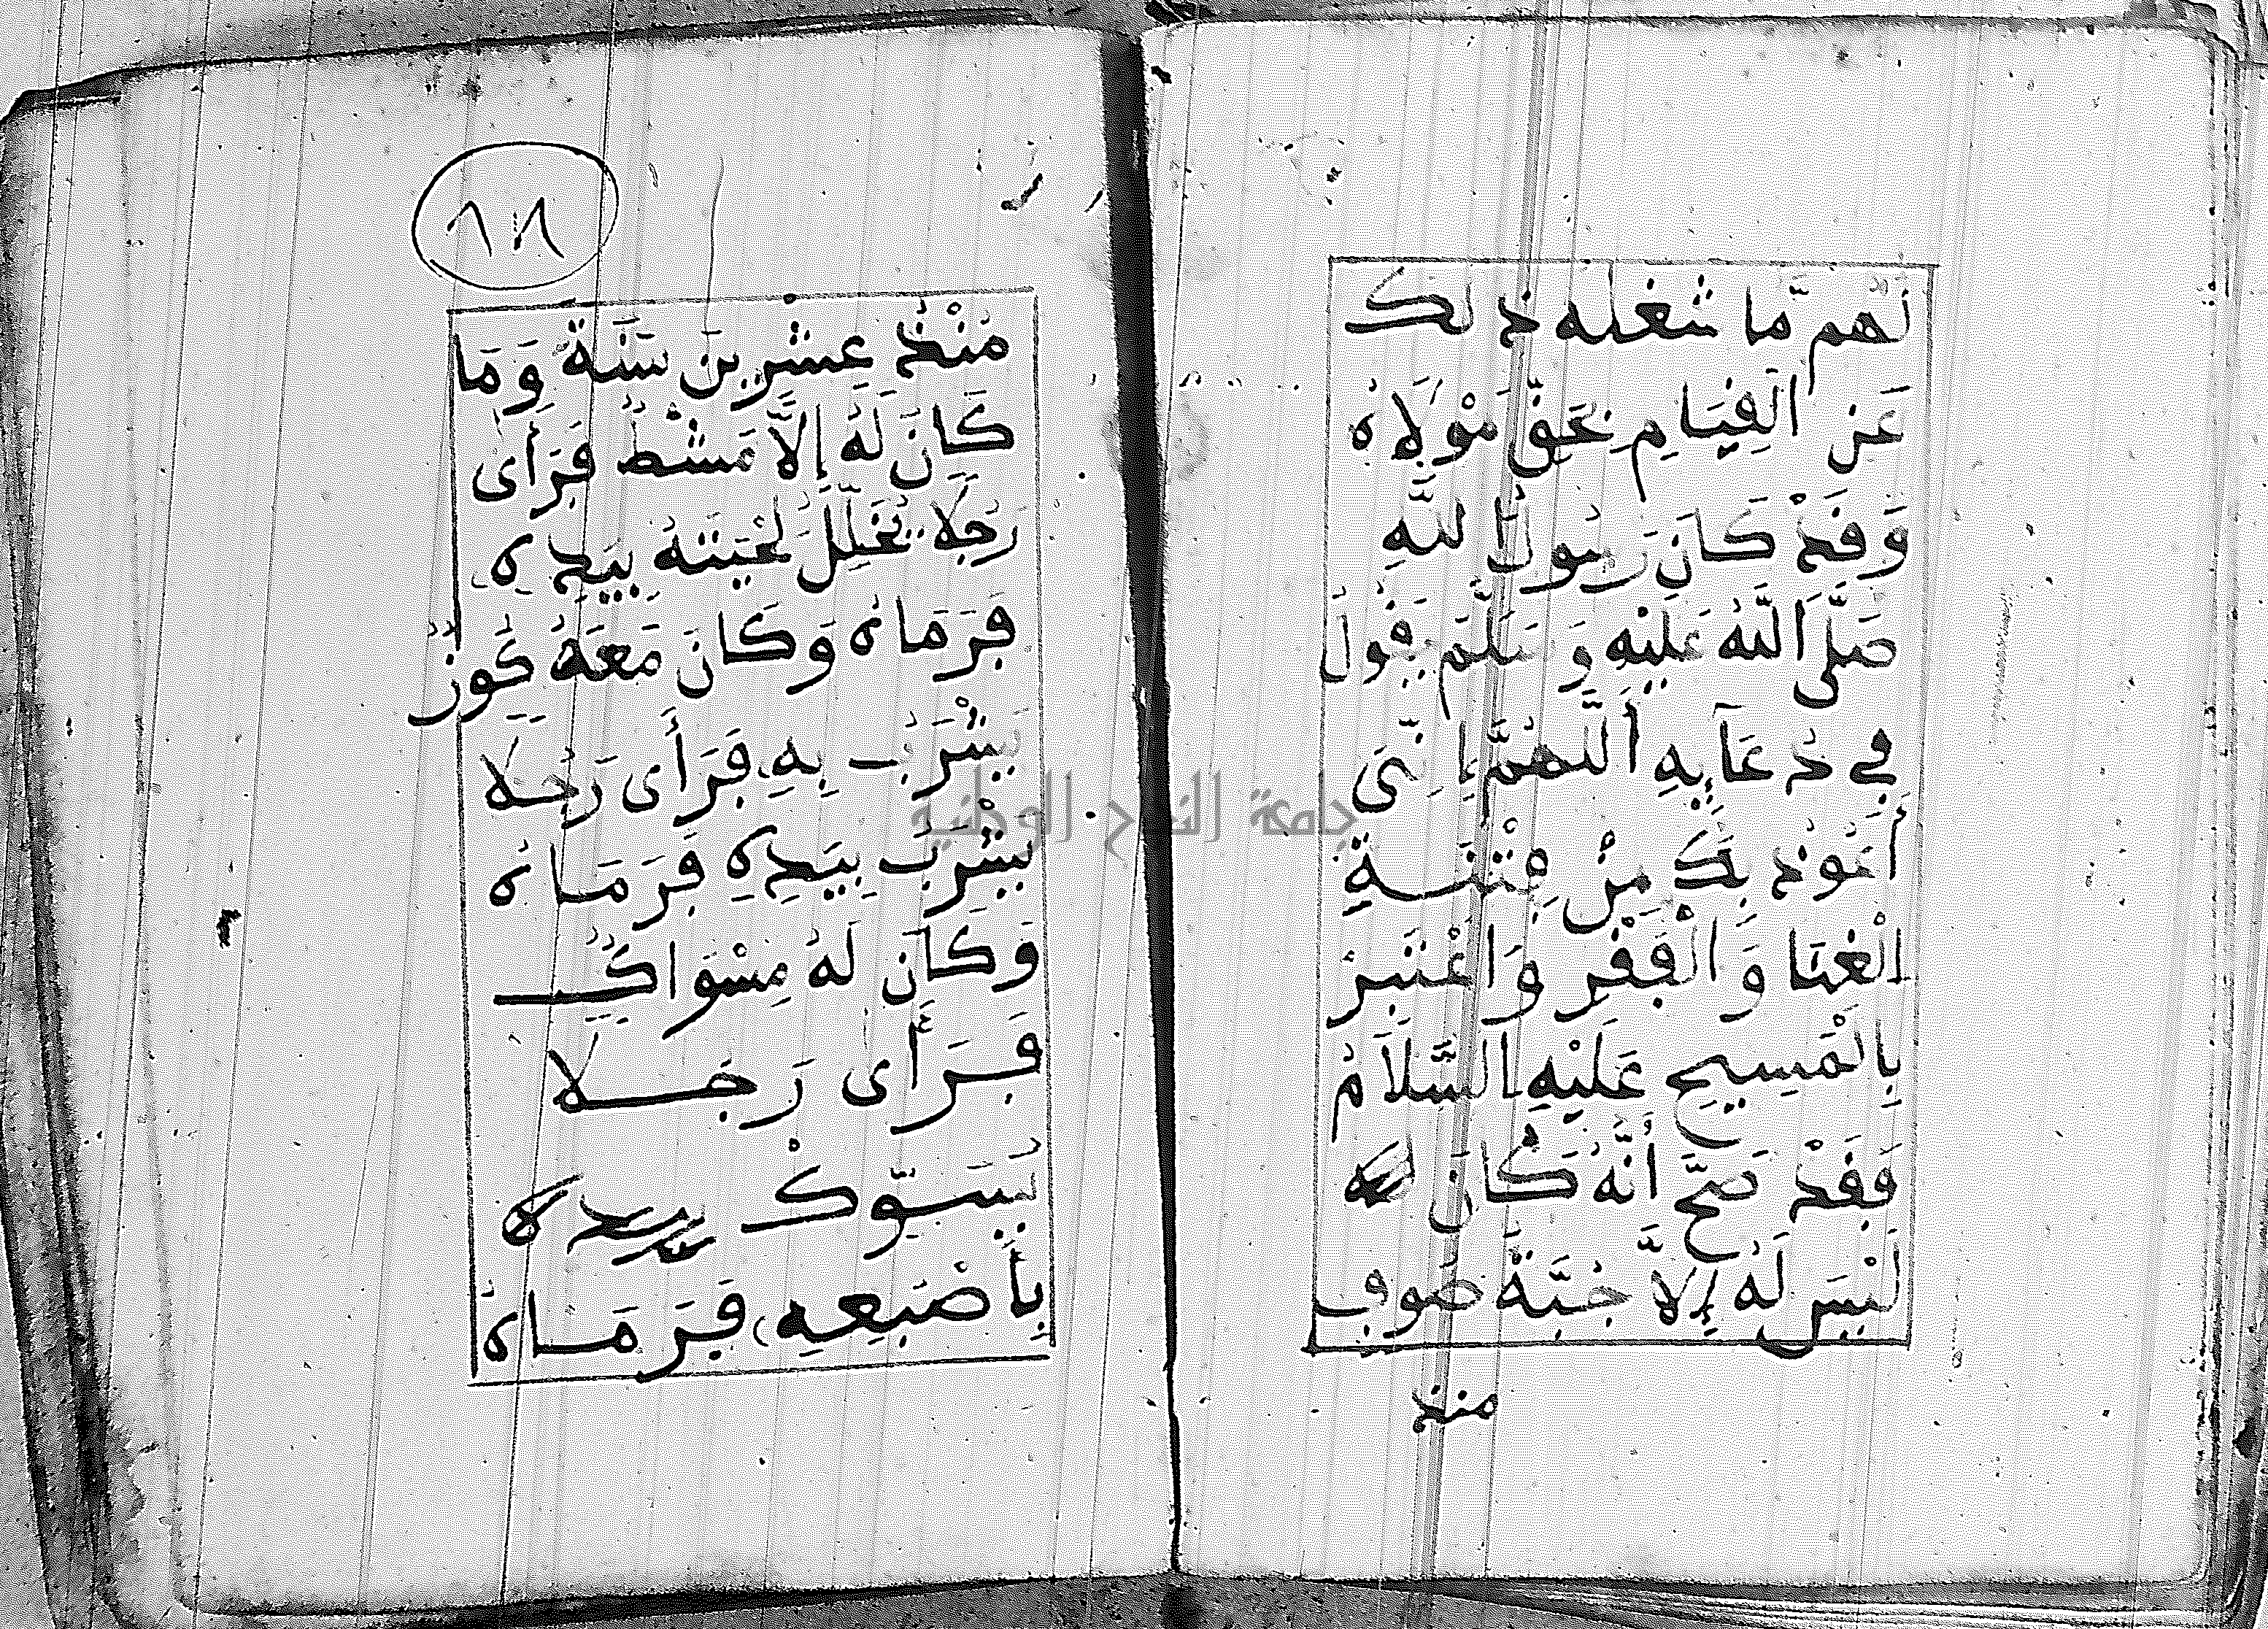 لَهُم مَّا شغله ذلك
عَن الفِيَامِ بحَقِّ مَوْلَاهُ
وَفَدْ كَانَ رَسُولُ اللَّهِ
صَلَّى اللَّهُ عَلَيْهِ وَسَلَّمَ يَقُولُ
فِي دُعَآيِهِ اَللَّهُمَّ إِنِّى
أَعُوذ بِكَ مِنْ فِتْنَةِ
الْغِنَا وَالْفَقْرِ وَاعْتَبِرْ
بِالْمَسِيحِ عَلَيْهِ السَّلَامُ
فَقَدْ صَحَّ أَنَّهُ كَانَ
لَيْسَ لَهُ إِلَّا جُبَّةُ صُوفٍ
منذ
٦٨
مُنْذُ عِشْرِينَ سَنَةً وَمَا
كَانَ لَهُ إِلَّا مَشْطٌ فَرَأَى
رَجُلًا يُخَلِّلُ لِحْيَتَهُ بِيَدِهِ
فَرَمَاهُ وَكَانَ مَعَهُ كُوزٌ
يَشْرَبُ بِهِ فَرَأَى رَجُلا
يَشْرَبُ بِيَدِهِ فَرَمَاهُ
وَكَانَ لَهُ مِسْوَاكٌ
فَرَأَى رَجُلا
يَسَوِّكْ بيده
بِأَصْبَعِهِ فَرَمَاهُ
جامعة النجاح الوطنية